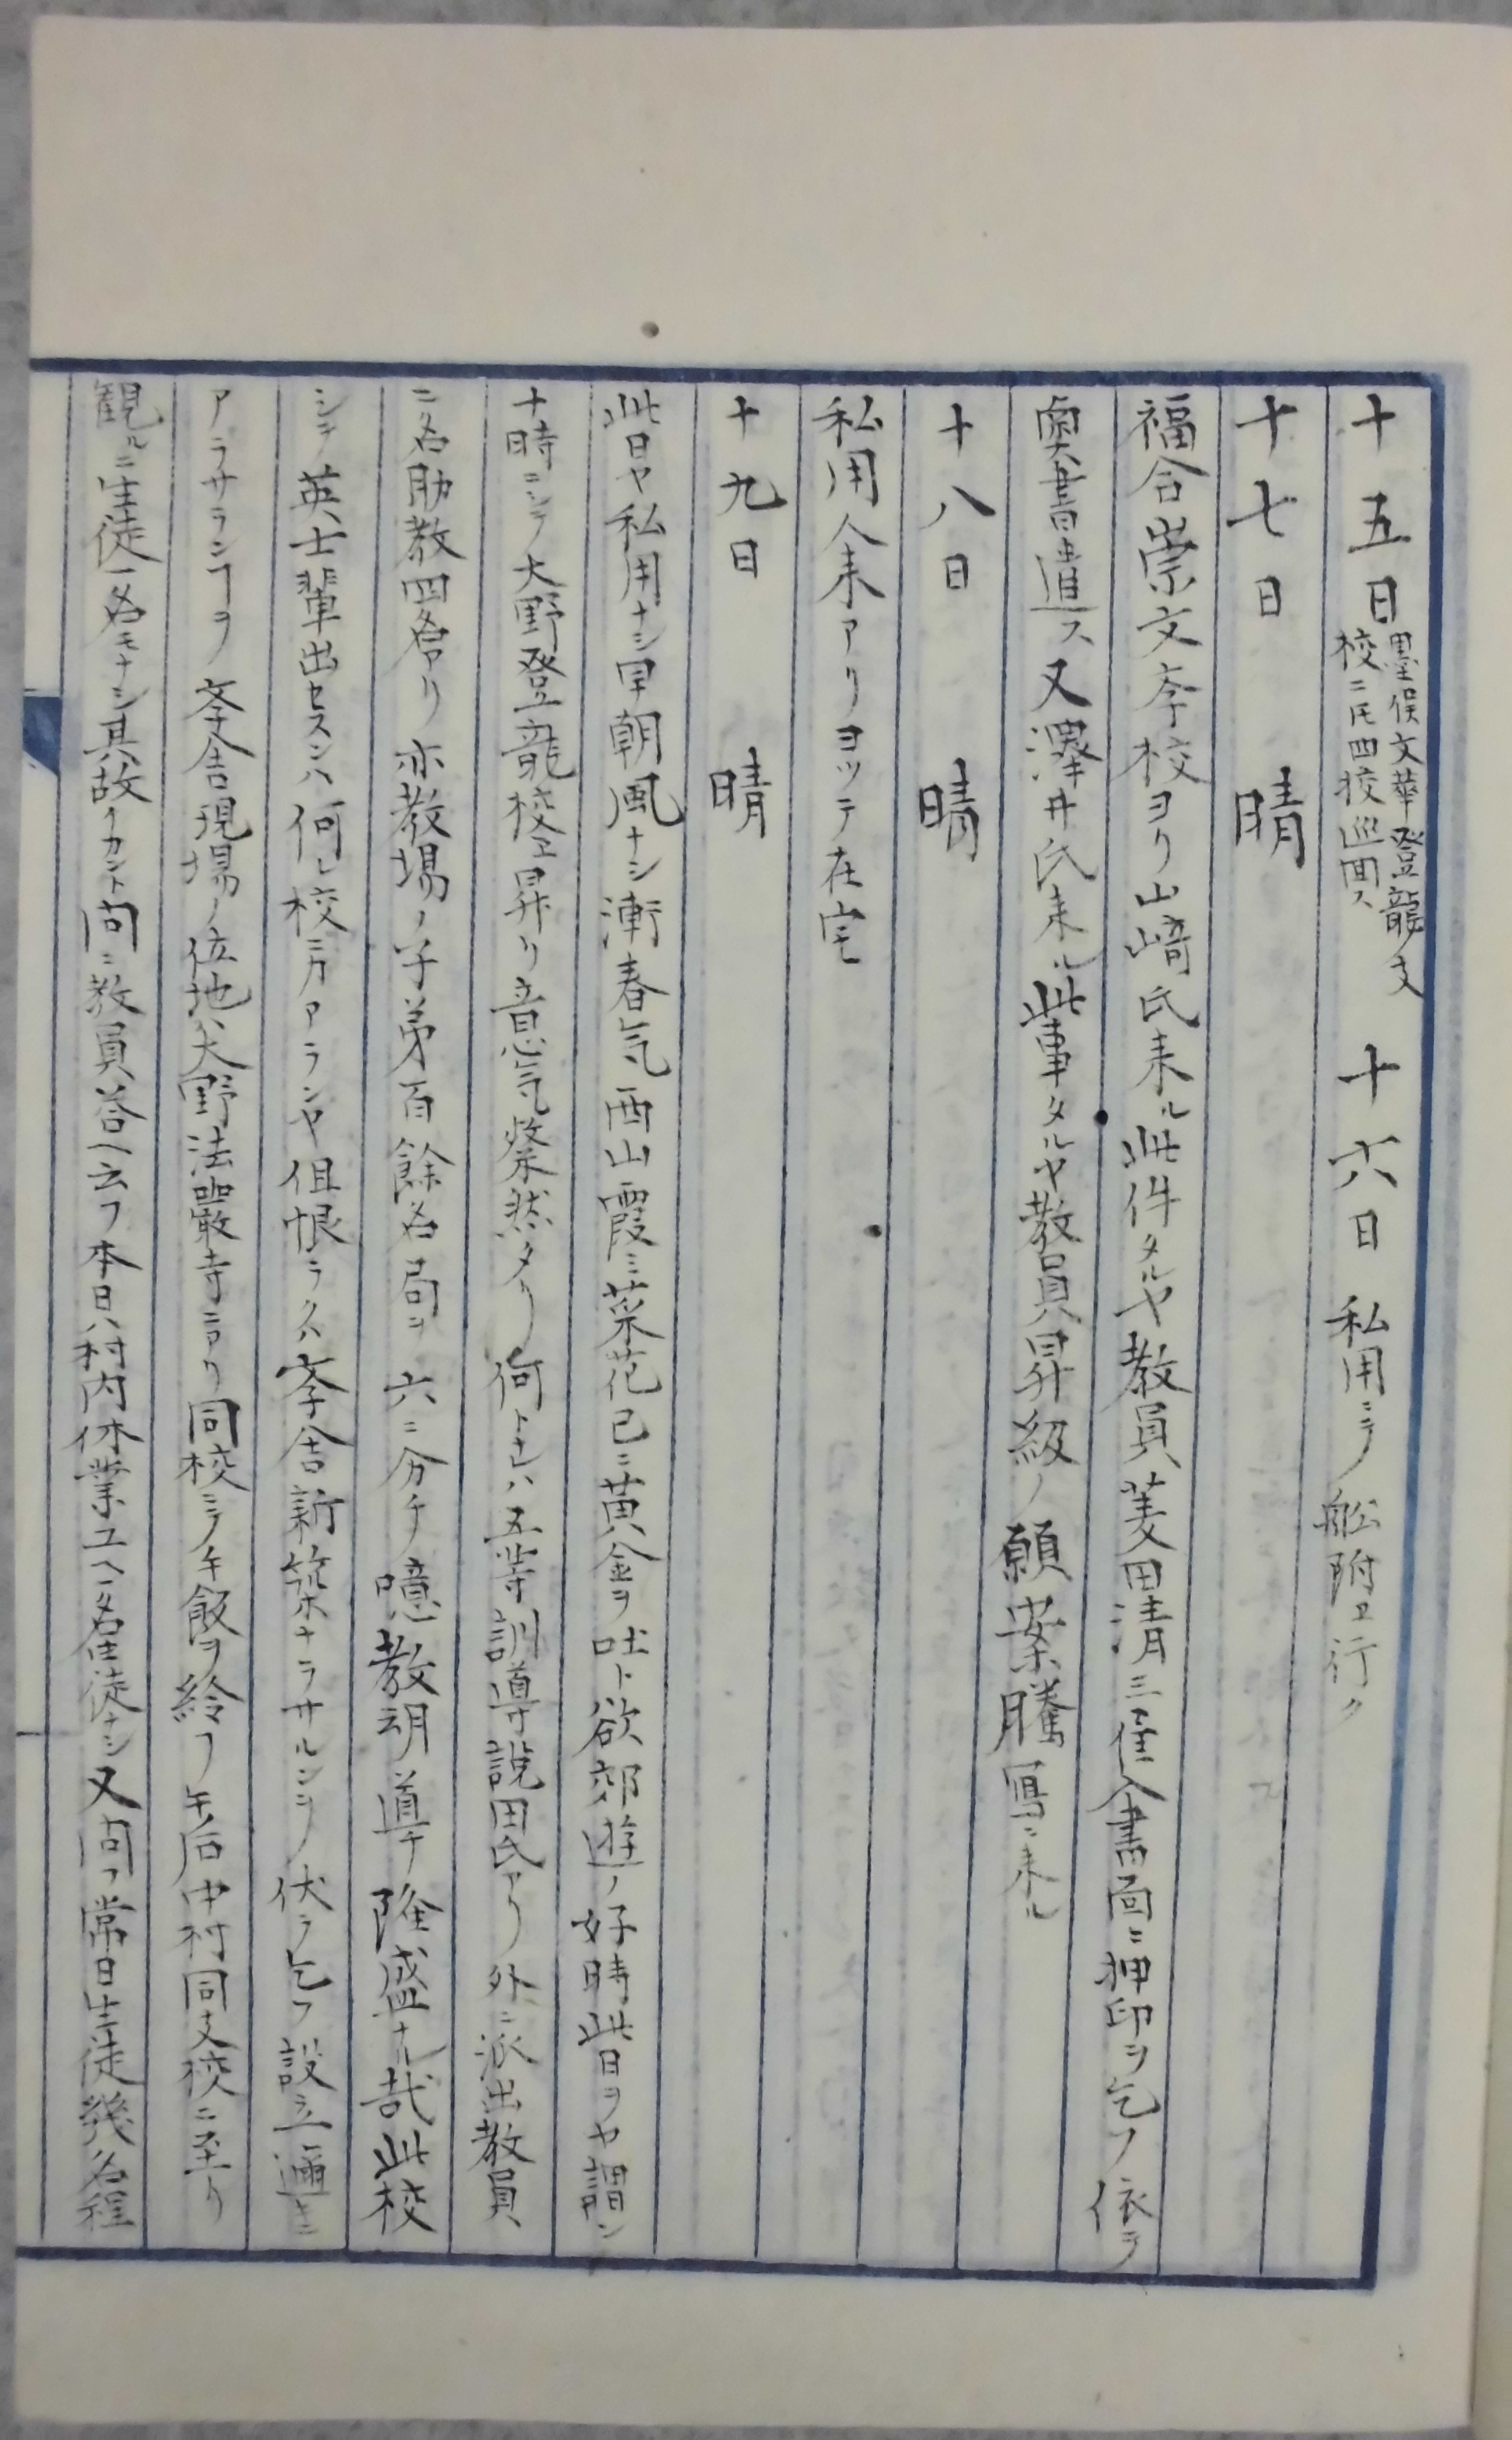 十五日墨俣文華登龍支校ニ氏四校巡回ス　十六日　私用ニテ舩附エ行ク
十七日　晴
福合崇文斈校ヨリ山﨑氏来ル此件タルヤ教員美田清三進全書面ニ押印ヲ乞フ依ラ
奥書遣ス又澤井氏来ル此事タルヤ教員昇級ノ願案騰寫ニ来ル
十八日　晴
私用人来アリヨツテ在宅
十九日　晴
此日ヤ私用ナシ早朝風ナシ漸春气西山霞ミ菜花已ニ黄金ヲ吐ト欲郊遊ノ好時此日ヲヤ謂ン
十時ニシテ大野登龍校エ昇リ意气粲然タリ何トナレハ五等訓導説田氏アリ外ニ派出教員
二名助教四名アリ亦教場ノ子弟百餘名局ヲ六ニ分チ噫教明導キ隆盛ナル哉此校
シテ英士輩出セスンハ何レ校ニカアランヤ但恨ラクハ斈舎新築ナラサルンヲ伏ラ乞フ設立邇キニ
アラサランヿヲ斈舎現場ノ位地ハ大野法巖寺ニアリ同校ニテ午飯ヲ給フ午后中村同支校ニ至リ
観ルニ生徒一名モナシ其故イカント問ニ教員答ヘ云フ本日ハ村内休業ユヘ一名生徒ナシ又問フ常日生徒幾名程